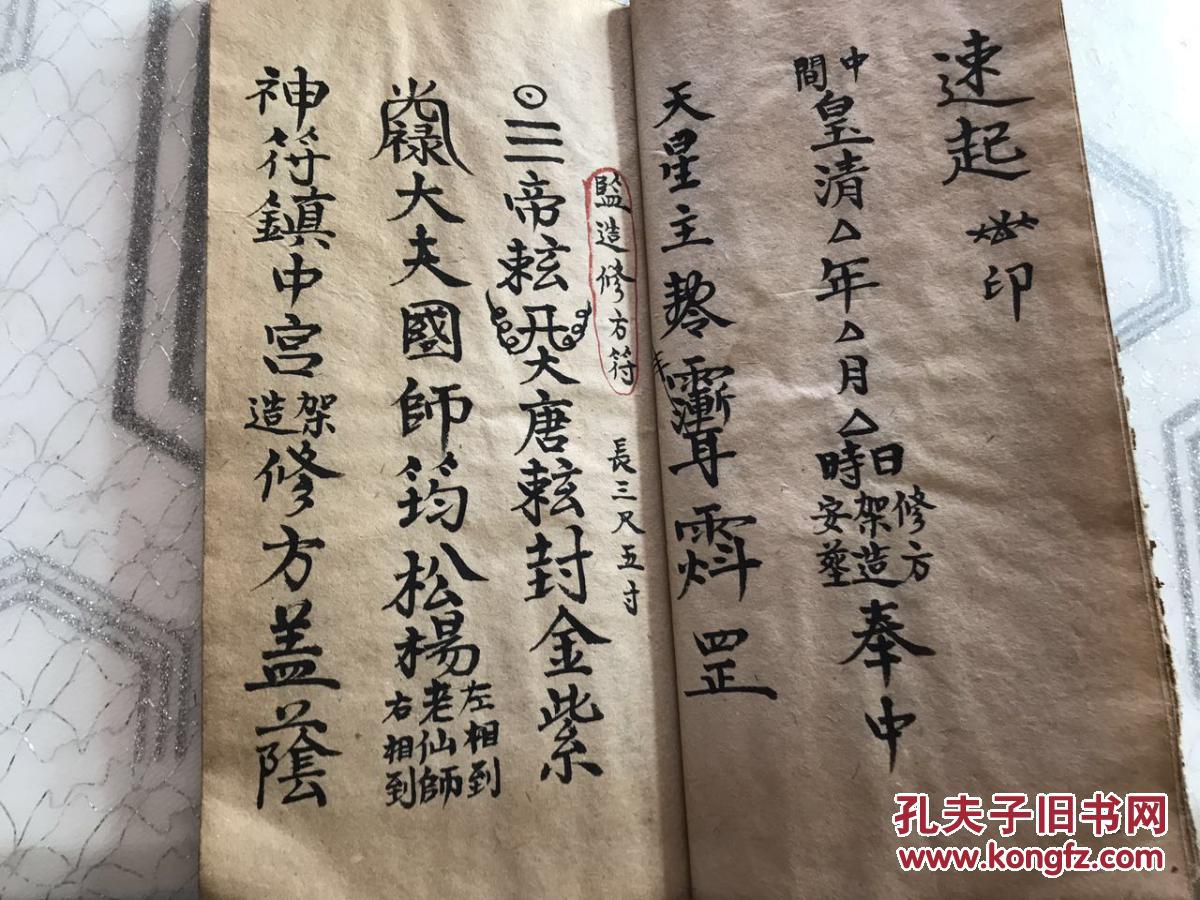 速起 印
中間皇清△年△月△日時修方架造安葬奉中
天星主 罡
監造修方符
長三尺五寸
三帝 大唐 封金紫
光祿大夫國師筠松楊老仙師左相到右相到
神符鎮中宮架造修方蓋蔭
孔夫子旧书网
www.kongfz.com